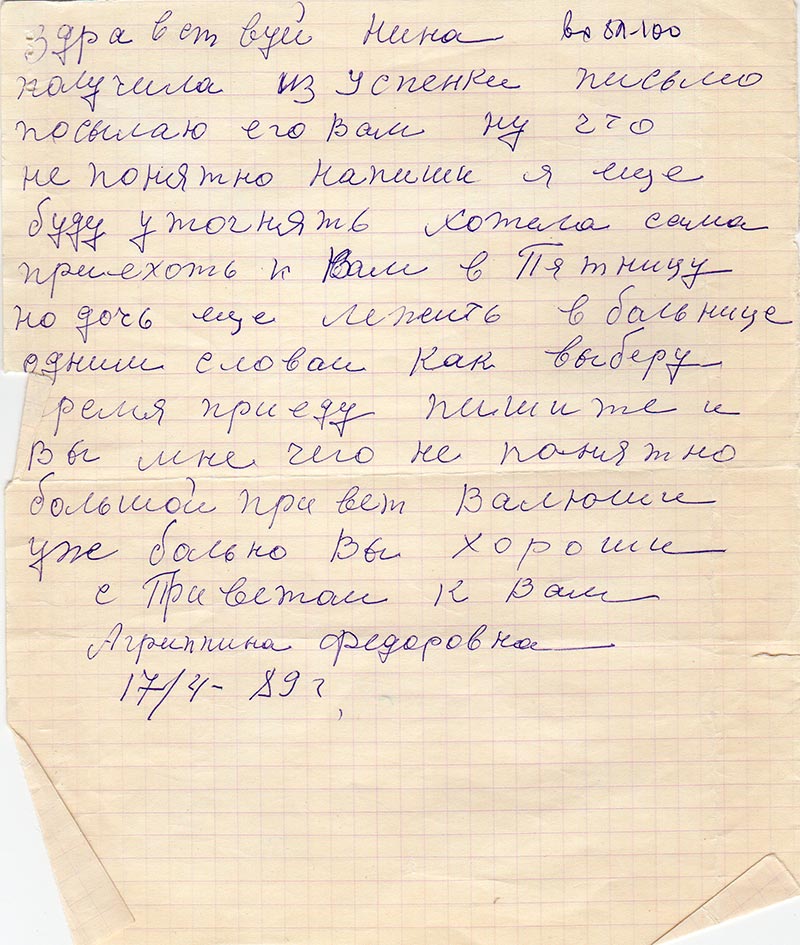 Здравствуй Нина
получила из Успенки письмо
посылаю его Вам ну что
не понятно напиши я еще
буду уточнять хотела сама
приехоть к Вам в Пятницу
но дочь еще лежить в больнице
одним словам как выберу
ремя приеду пишите и
Вы мне чего не понятно
большой привет Валюши
уж больно Вы хороши
с Приветом к Вам
Агриппина Федоровна
17/4-89 г